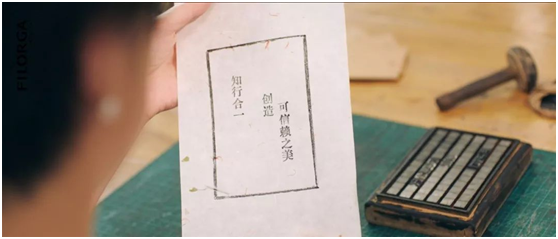 FILORGA
可信赖之美
创造
知行合一